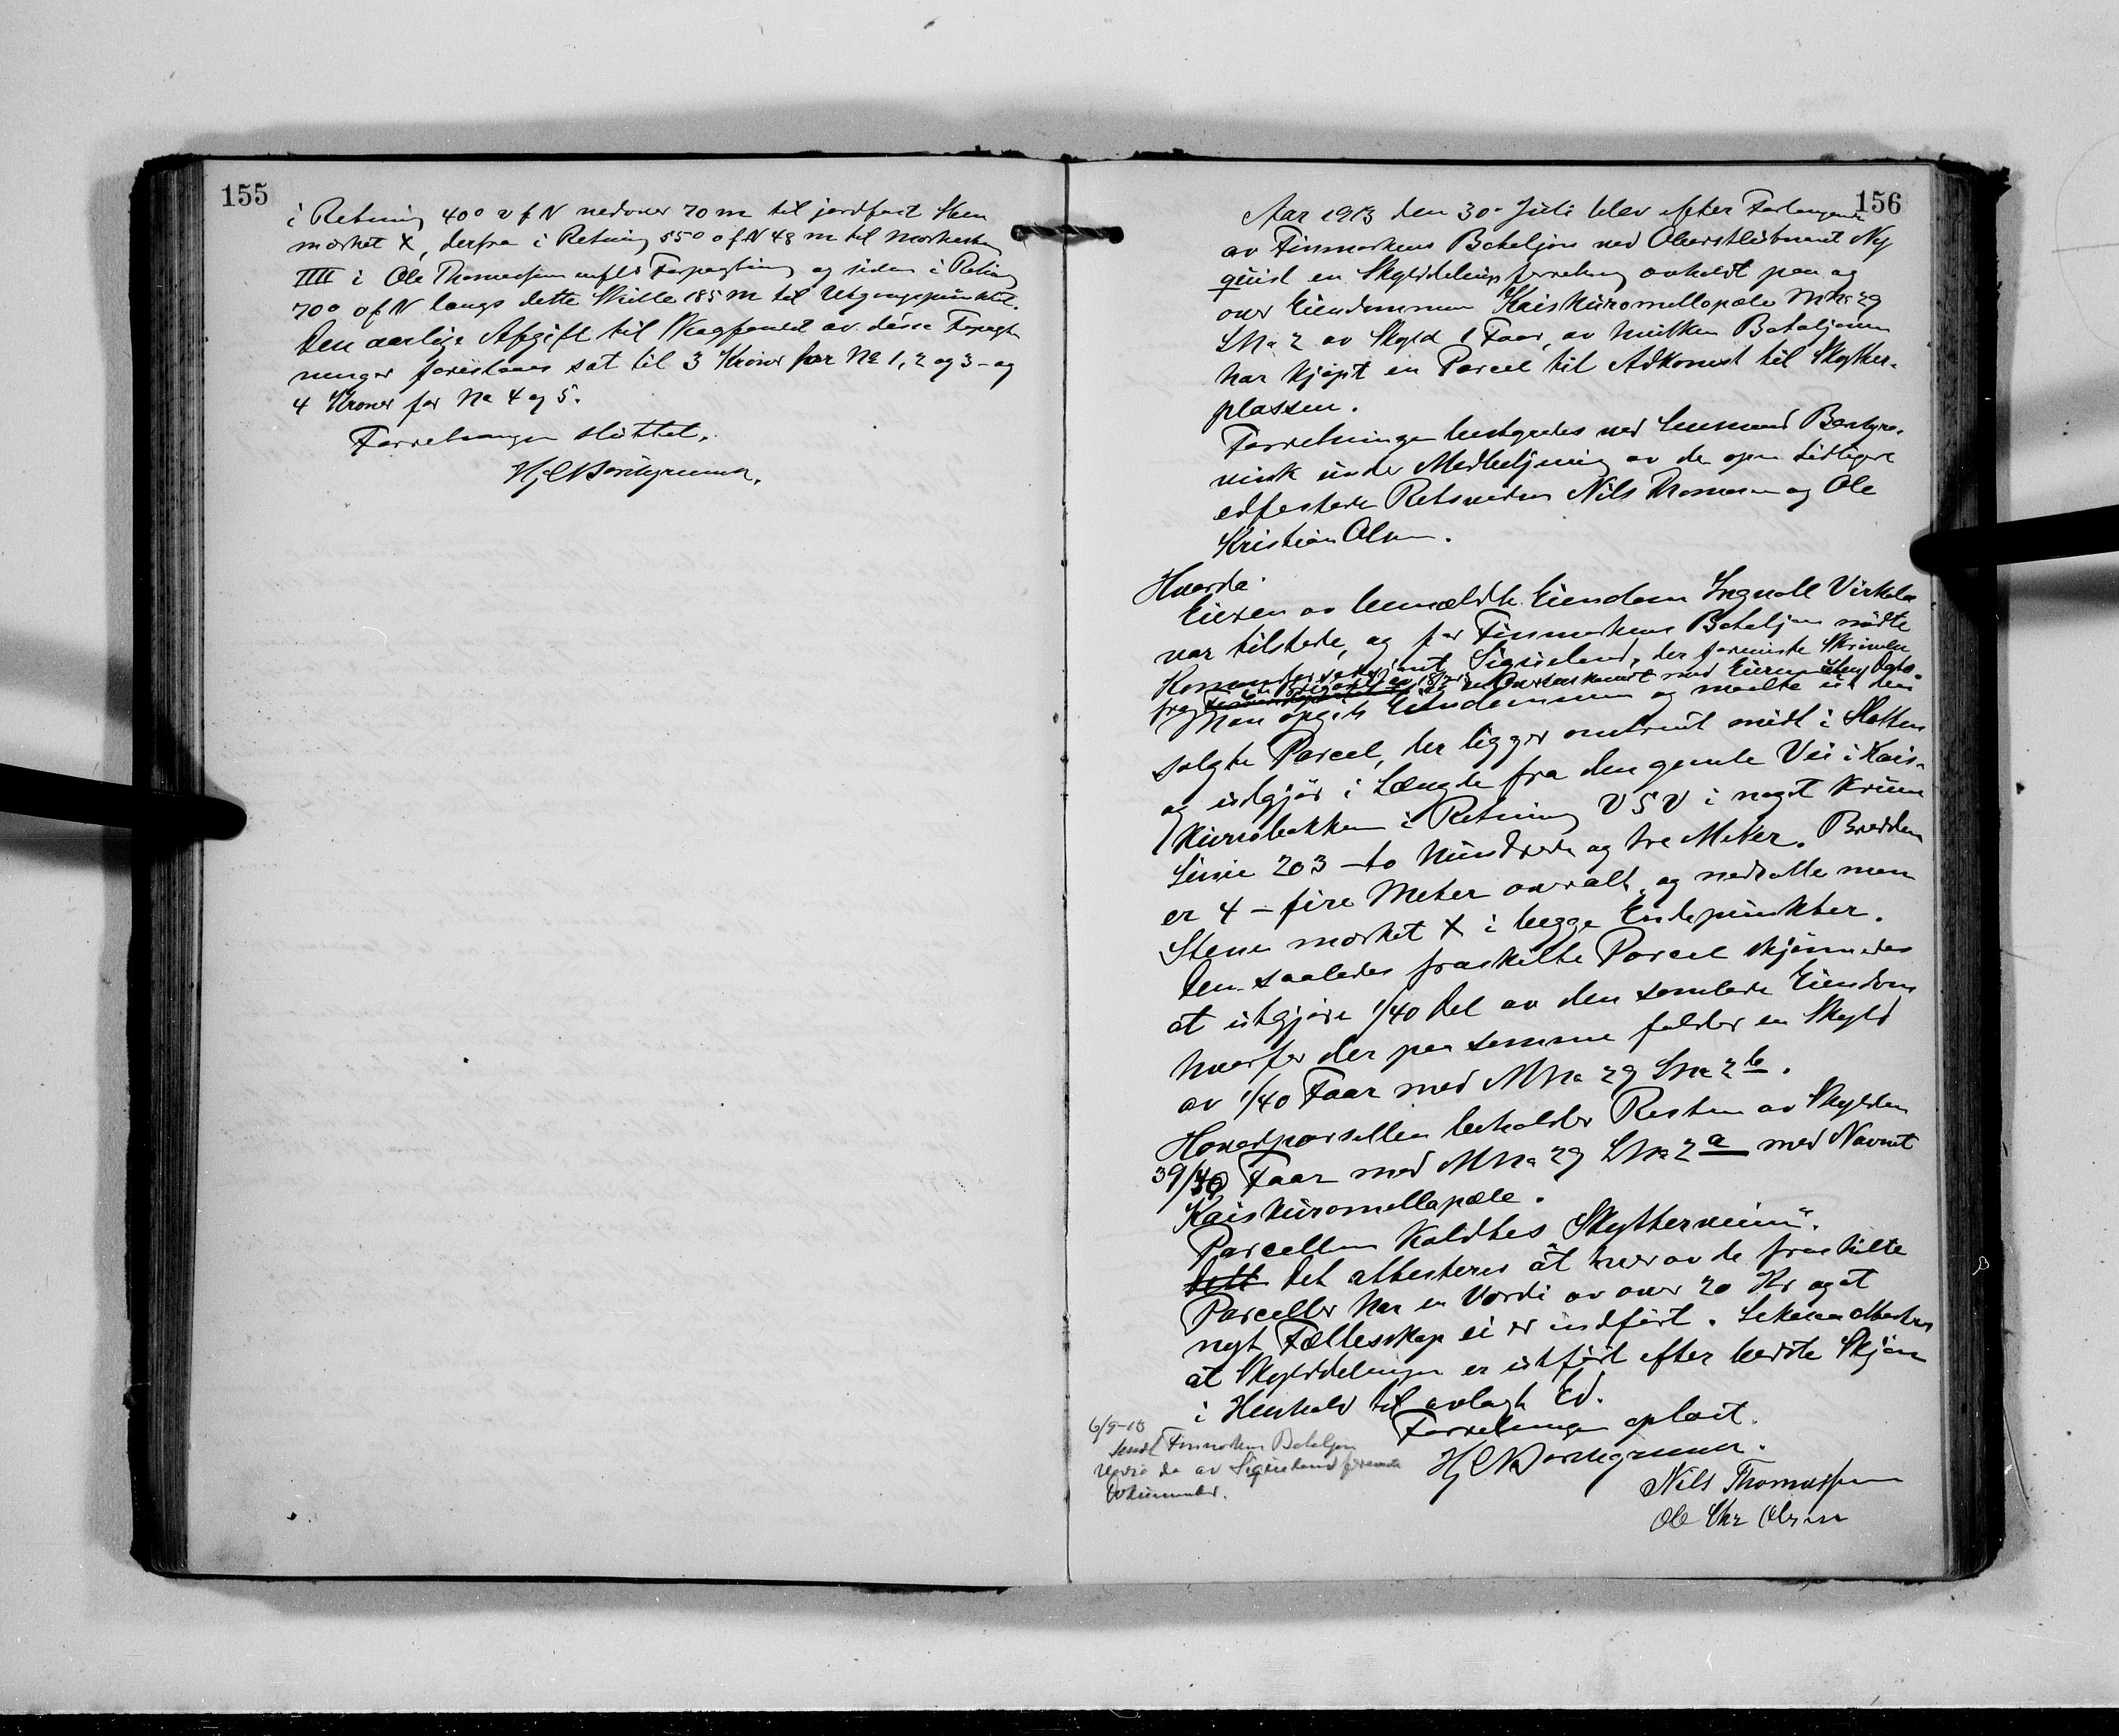 155
i Retning 40° v f N nedover 70 m til jordfast Sten
mærket X, derfra i Retning 55° o f N 48 m til Merkesten
IIII i Ole Thomassens Forpagtning og siden i Retning
70° o f N langs dette Skille 185 m til Utgangspunktet.
Den aarlige Afgift til Skogfondet av disse Forpagt
ninger foreslaaes sat til 3 Kroner for No 1, 2 og 3 - og
4 Kroner for No 4 og 5.
Forretningen sluttet.
156
Aar 1913 den 30. Juli blev efter Forlangende
av Finmarkens Bataljon ved Oberstløitnant Ny
quist en Skylddelingsforretning avholdt paa og
over Eiendommen Kaiskuromellapæle Mno 29
Lno 2 av Skyld 1 Faar, av hvilken Bataljonen
har kjøpt en Parcel til Adkomst til Skytter-
plassen.
Forretningen bestyredes ved Lensmand Borchgre-
vink under Medbetjening av de open tidligere
edfestede Retsvidner Nils Thomassen og Ole
Kristian Olsen.
Hvorda:
Eieren av bemældte Eiendom Ingvall Virkola
var tilstede, og for Finmarkens Bataljon mødte
Kommandersersjant Sigueland, der foreviste Skrivelse
fra 6te Brigade av 18/7 og Overenskomst med Eieren
Man opgik Eiendommen og maalte ut den
solgte Parcel, der ligger omtrent midt i Slotten
og utgjør i Længde fra den gamle Vei i Kais-
kurrobakken i Retning VSV i noget krum
Linie 203 - to hundrede og tre Meter. Bredden
er 4 - fire Meter overalt, og nedsatte man
Stene mærket X i begge Endepunkter.
Den saaledes fraskilte Parcel skjønnedes
at utgjøre 1/40 Del av den samlede Eiendom
hvorfor der paa samme falder en Skyld
av 1/40 Faar med Mno 29 Lno 2 b.
Hovedparsellen beholder Resten av Skylden
39/40 Faar med Mno 29 Lno 2 a med Navnet
Kaiskuromellapæle.
Parcellen kaldtes Skytterveien".
Det attesteres at hver av de fraskilte
Parceller har en Værdi av over 20 Kr og at
nyt Fællesskap ei er indført. Likesaa attesteres
at Skylddelingen er utført efter bedste Skjøn
i Henhold til avlagt Ed.
Forretningen oplæst.
Nils Thomassen
Ole Chr Olsen
6/9-13
sendt Finmarkens Bataljon
de av Sigueland foreviste
Dokumenter.